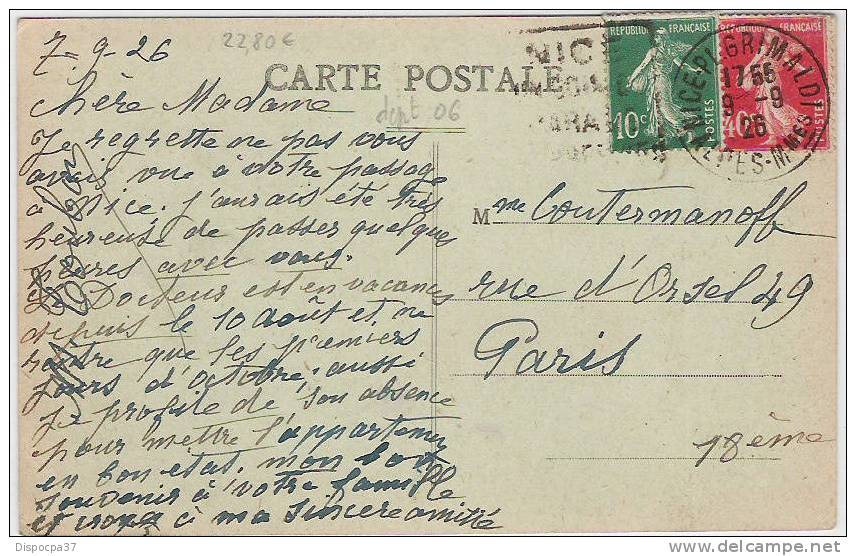 7-9-26
22,80€
CARTE POSTALE
dept 06
REPUBLIQUE FRANÇAISE
10c
POSTES
REPUBLIQUE FRANÇAISE
40
POSTES
NICE
NICE-PL. GRIMALDI
17 55
9 -9
26
ALPES-MMES
Chère Madame
Je regrette ne pas vous
avoir vue à votre passage
à Nice. j'aurais été très
heureuse de passer quelques
heures avec vous.
Le Docteur est en vacances
depuis le 10 août et ne
rentre que les premiers
jours d'octobre, aussi
je profite de son absence
pour mettre l'appartement
en bon état. mon bon
souvenir à votre famille
et croyez à ma sincère amitié
Mme Coutermanoff
rue d'Orsel 49
Paris
18ème
Dispocpa37
delcampe.net